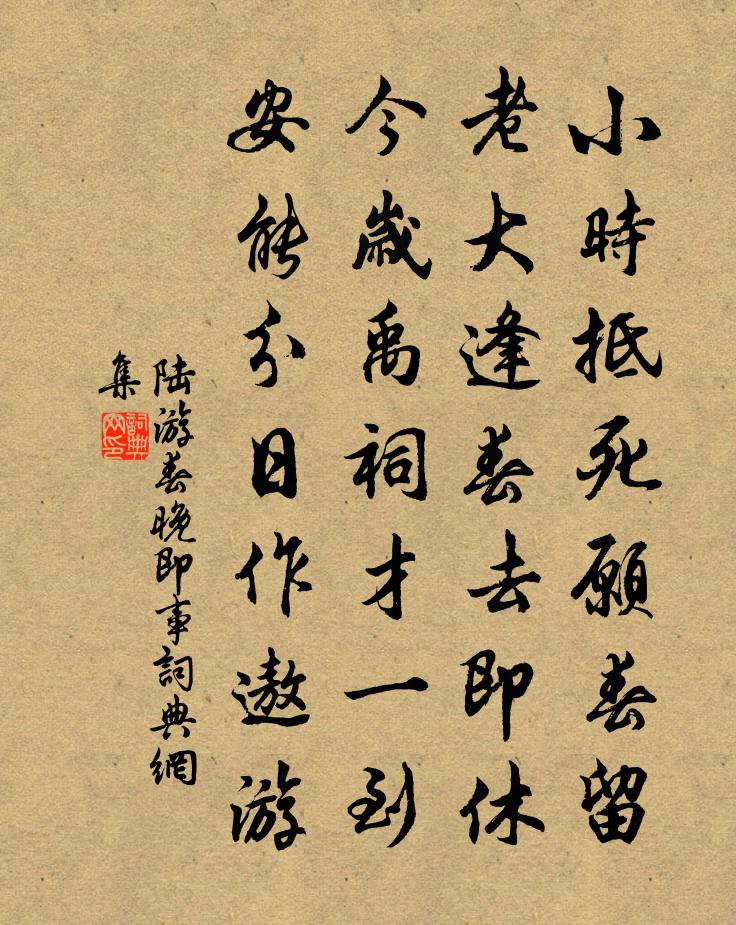 小時抵死願春留
老大逢春去即休
今歲禹祠才一到
安能分日作遨游
陸游春晚即事詞典網
集
詞典
網印